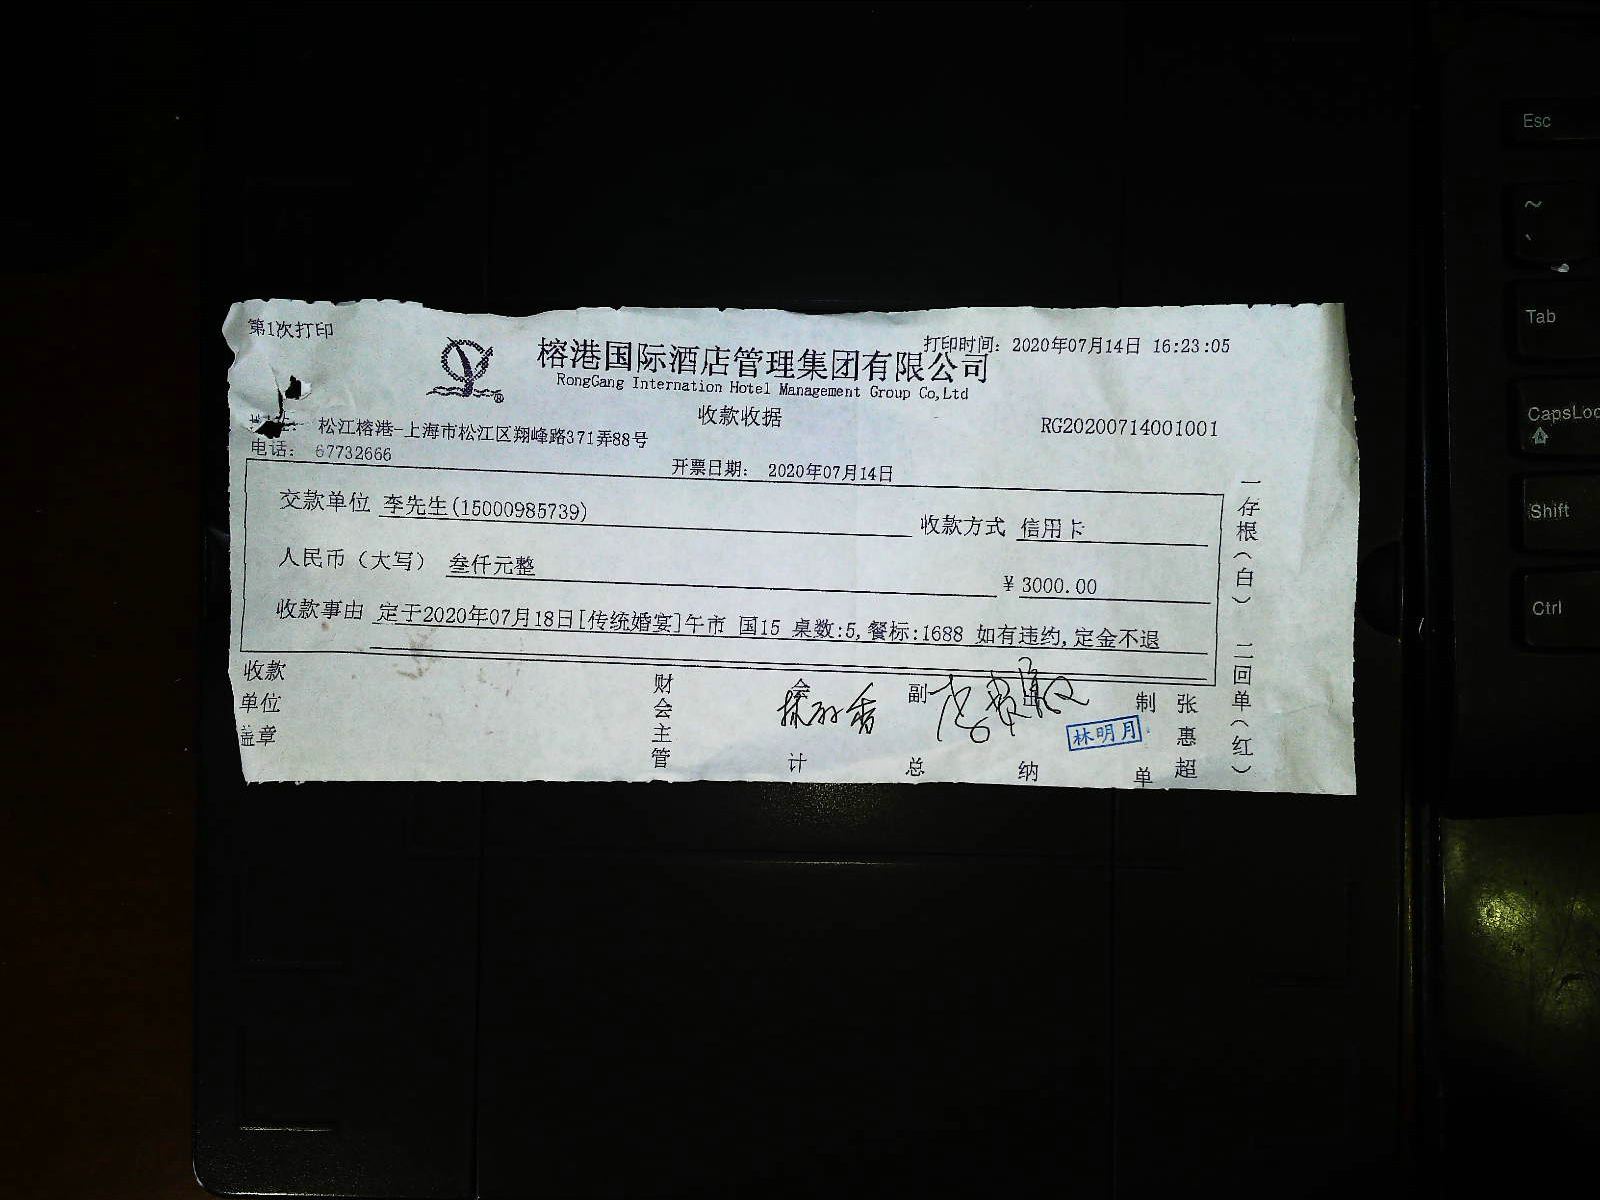 第1次打印
打印时间：2020年07月14日 16:23:05
榕港国际酒店管理集团有限公司
RongGang Internation Hotel Management Group Co,Ltd
收款收据
RG20200714001001
松江榕港-上海市松江区翔峰路371弄88号
电话： 67732666
开票日期： 2020年07月14日
交款单位 李先生(15000985739) 收款方式 信用卡
人民币（大写） 叁仟元整 ¥ 3000.00
收款事由 定于2020年07月18日[传统婚宴]午市 国15 桌数:5,餐标:1688 如有违约,定金不退
收款单位盖章
财会主管
会计
副总
林明月
纳
制单
张惠超
一存根（白） 二回单（红）
Esc
~
`
Tab
CapsLoc
Shift
Ctrl